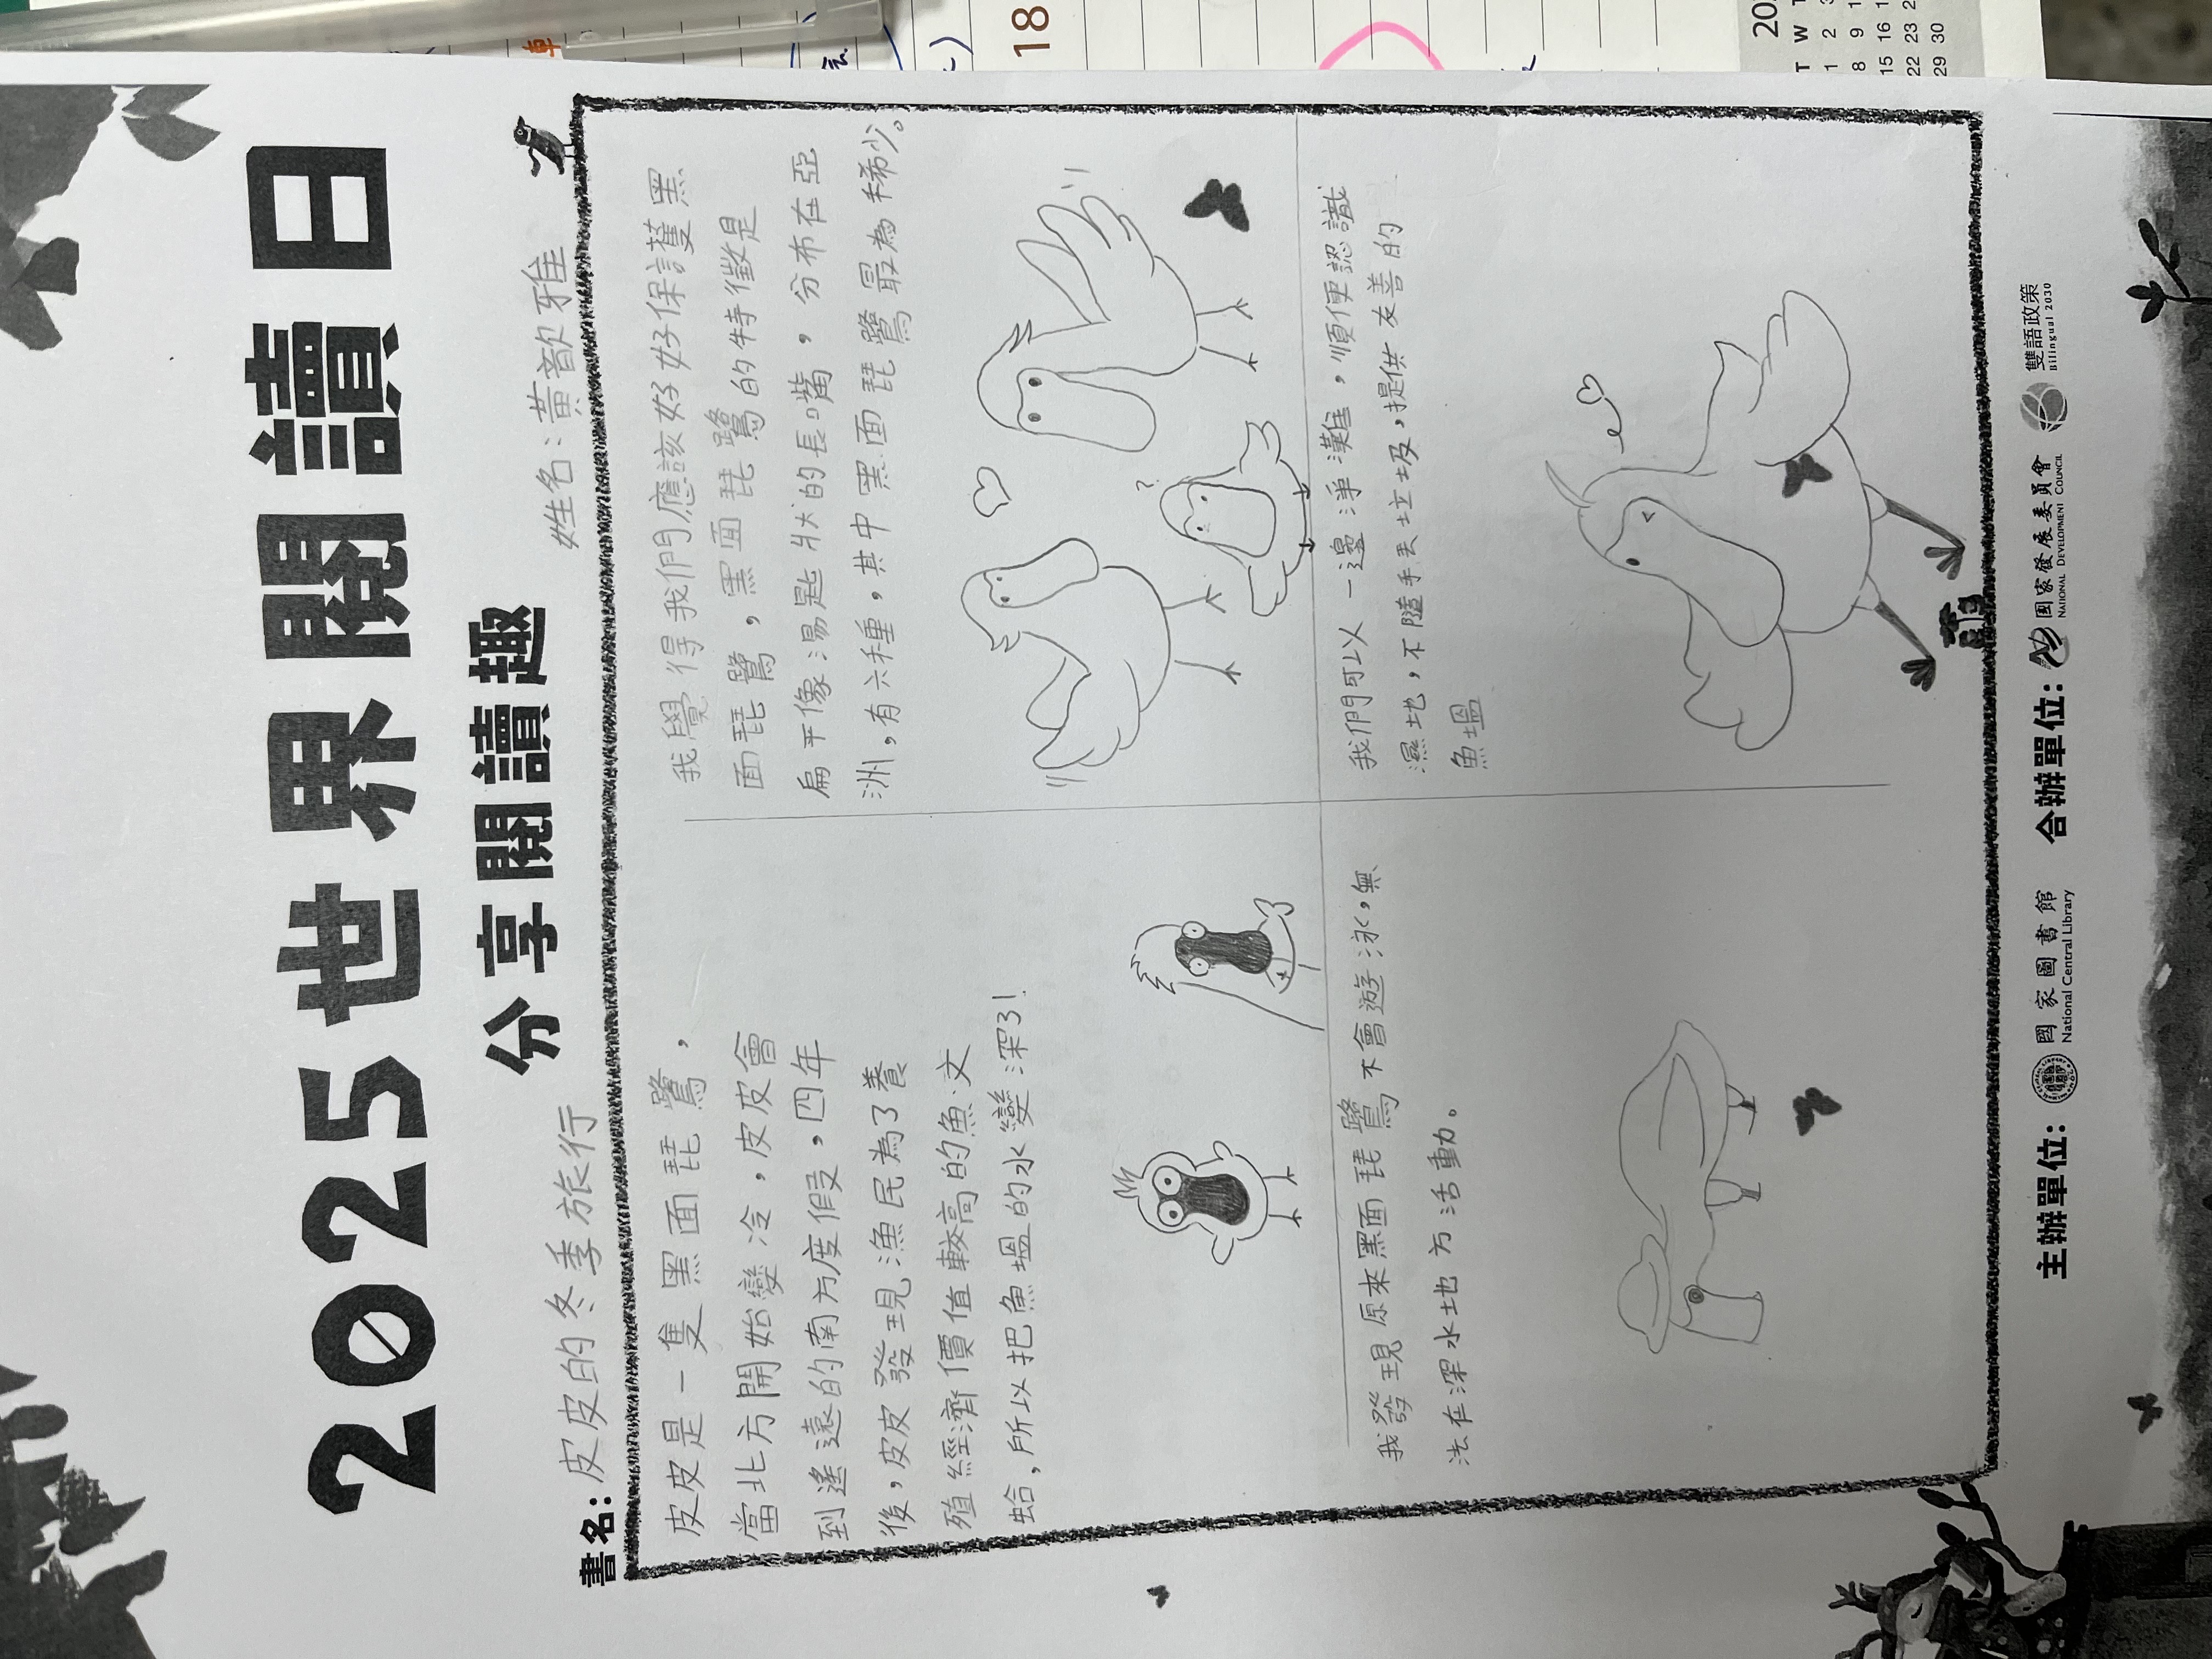 2025世界閱讀日
分享閱讀趣
書名：皮皮的冬季旅行
姓名：黃歆雅
皮皮是一隻黑面琵鷺，
當北方開始變冷，皮皮會
到遙遠的南方度假，四年
後，皮皮發現漁民為了養
殖經濟價值較高的魚文
蛤，所以把魚塭的水變深了！
我覺得我們應該好好保護黑
面琵鷺，黑面琵鷺的特徵是
扁平像湯匙狀的長嘴，分布在亞
洲，有六種，其中黑面琵鷺最為稀少。
?
我發現原來黑面琵鷺不會遊泳，無
法在深水地方活動。
我們可以一邊淨灘，順便認識
濕地，不隨手丟垃圾，提供友善的
魚塭
主辦單位：
國家圖書館
National Central Library
合辦單位：
國家發展委員會
NATIONAL DEVELOPMENT COUNCIL
雙語政策
Bilingual 2030
18
T W T
1 2 3
8 9 1
15 16 1
22 23 2
29 30